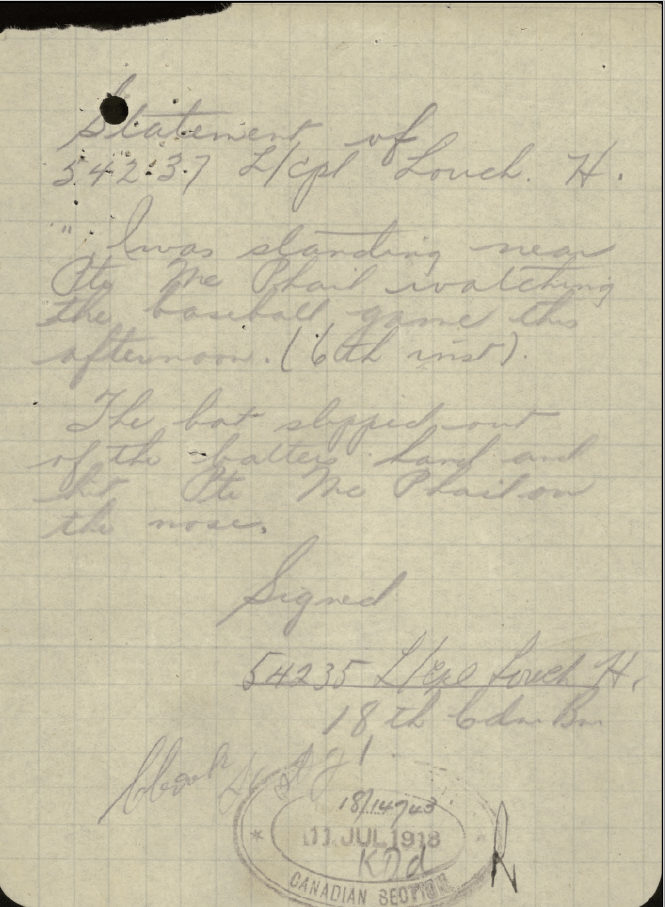 Statement of
54237 L/cpl Louch. H.
" I was standing near
Pte Mc Phail watching
the baseball game this
afternoon. (6th inst).
The bat slipped out
of the batters hand and
hit Pte Mc Phail on
the nose.
Signed
54235 L/Cpl Louch H.
18th Cdn Bn
18/14743
11 JUL 1918
CANADIAN SECTION